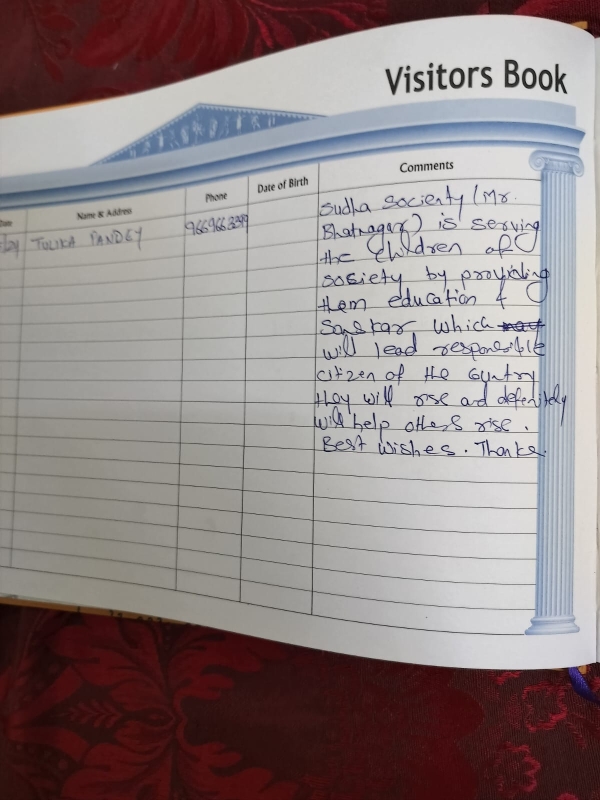 Visitors Book
Name & Address
Phone
Date of Birth
Comments
TULIKA PANDEY
Sudha Socienty (Mr.
Bhatnagar) is serving
the children of
society by providing
them education &
Sanskar which
will lead responsible
citizen of the country
they will rise and defenitely
will help others rise.
Best wishes. Thanks.